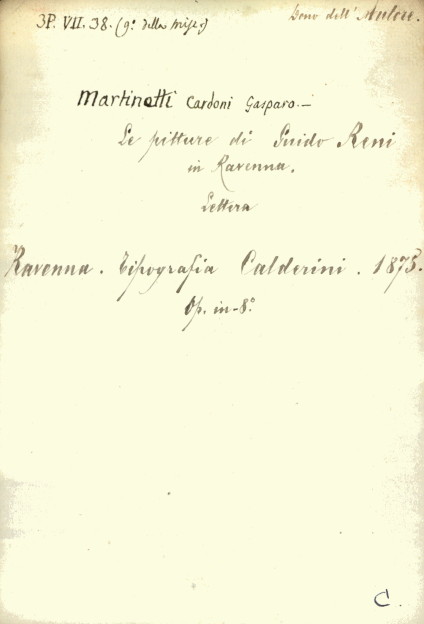 3P. VII. 38. (9ª della misc.)
Dono dell' Autore.
Martinetti Cardoni Gasparo.—
Le pitture di Guido Reni
in Ravenna.
Lettera
Ravenna. Tipografia Calderini. 1875.
Op. in-8.°
C.